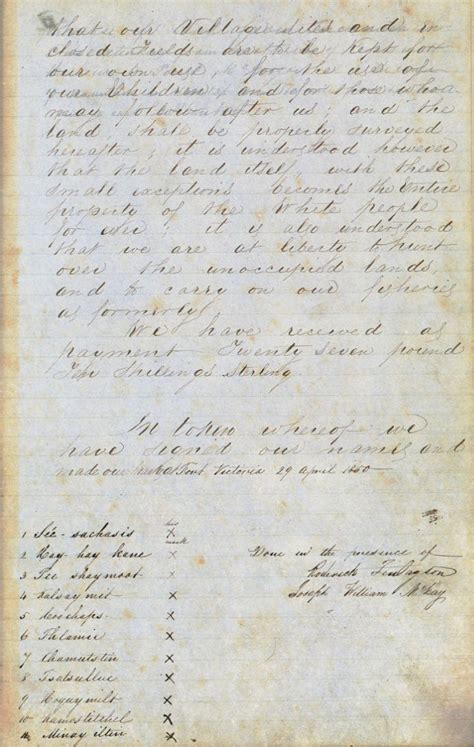 that our Village sites and in
closed Fields are to be kept for
our own use, for the use of
our Children, and for those who
may follow after us; and the
land, shall be properly surveyed
hereafter; it is understood however
that the land itself, with these
small exceptions becomes the Entire
property of the White people
for ever; it is also understood
that we are at liberty to hunt
over the unoccupied lands,
and to carry on our fisheries
as formerly.
We have received as
payment Twenty seven pound
Ten Shillings Sterling.
In token whereof we
have signed our names and
made our marks Fort Victoria 29 April 1850
his
mark
1 See-sachasis x
2 Hay-hay kane x
3 Pee shaymoot x
4 Kalsaymit x
5 Coochaps x
6 Thlamie x
7 Chamutstin x
8 Tsatsulluc x
9 Hoquymilt x
10 Kamostitchel x
11 Minayilten x
Done in the presence of
Roderick Finlayson
Joseph William McKay